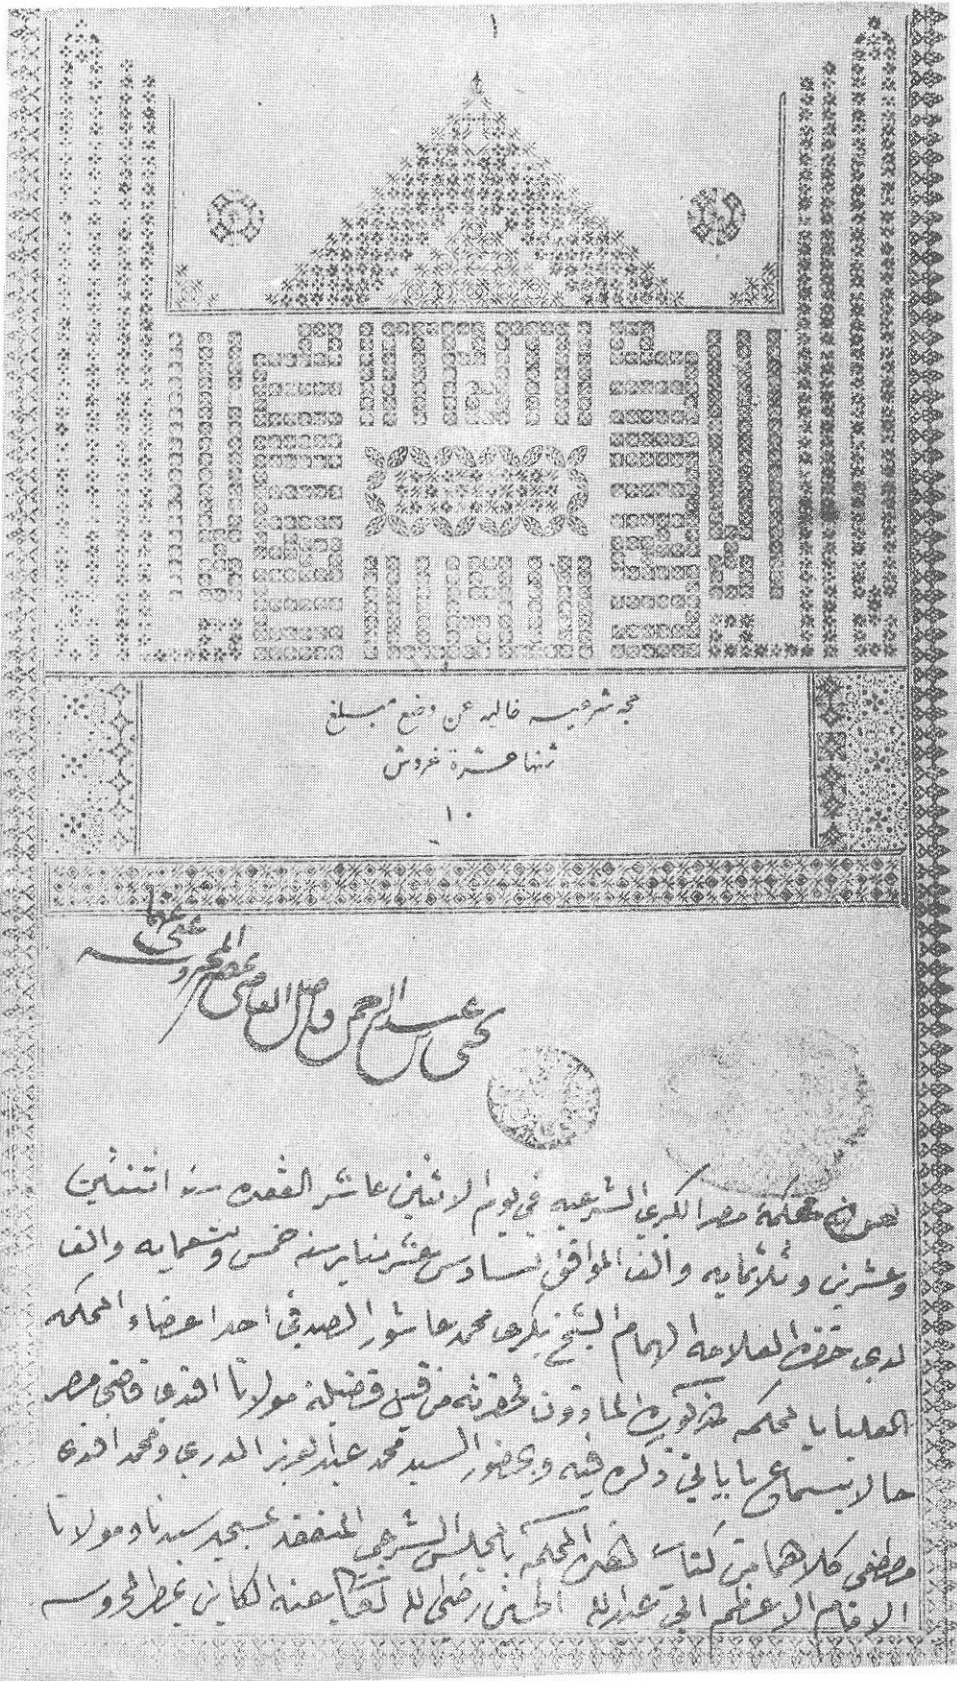 ١
حجه شرعيه خاليه عن وضع مبلغ
ثمنها عشرة غروش
١٠
يحيى عبد الرحمن فاضل القاضي بمصر المحروسه
عفى عنهما
بمحكمة مصر الكبرى الشرعيه في يوم الاثنين عاشر القعده سنة اثنتين
وعشرين وثلاثمايه والف الموافق لسادس عشر يناير سنه خمس وتسعمايه والف
لدى حضرة العلامه الهمام الشيخ بكرى محمد عاشور الصدفي احد اعضاء المحكمه
العليا بالمحكمه المذكورة الماذون لحضرته من قبل فضيلة مولانا افندى قاضى مصر
حالا بسماع ما ياتي ذكره فيه وبحضور السيد محمد عبد العزيز الدرى ومحمد افندى
مصطفى كلاهما من كتاب هذه المحكمة بالمجلس الشرعي المنعقد بمسجد سيدنا ومولانا
الامام الاعظم ابي عبد الله الحسين رضى الله تعالى عنه الكاين بمصر المحروسه